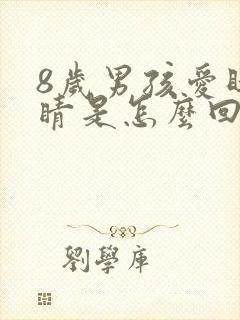 8歲男孩愛眨
睛是怎麼回
劉學庫